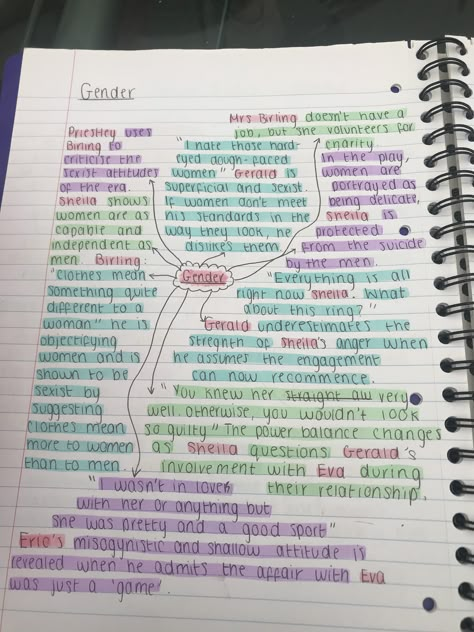 Gender
Priestley uses
Birling to
criticise the
sexist attitudes
of the era.
Sheila shows
women are as
capable and
independent as
men. Birling:
"clothes mean
something quite
different to a
woman" he is
objectifying
women and is
shown to be
sexist by
suggesting
clothes mean
more to women
than to men.
"I hate those hard-
eyed dough-faced
women" Gerald is
superficial and sexist.
If women don't meet
his standards in the
way they look, he
dislikes them.
Mrs Birling doesn't have a
job, but she volunteers for
charity.
In the play,
women are
portrayed as
being delicate,
Sheila is
protected
from the suicide
by the men.
Gender
"Everything is all
right now Sheila. What
about this ring?"
Gerald underestimates the
stregnth of Sheila's anger when
he assumes the engagement
can now recommence.
"You knew her straight aw very
well. otherwise, you wouldn't look
so guilty" The power balance changes
as Sheila questions Gerald's
involvement with Eva during
their relationship.
"I wasn't in love
with her or anything but
she was pretty and a good sport"
Eric's misogynistic and shallow attitude is
revealed when he admits the affair with Eva
was just a 'game'.